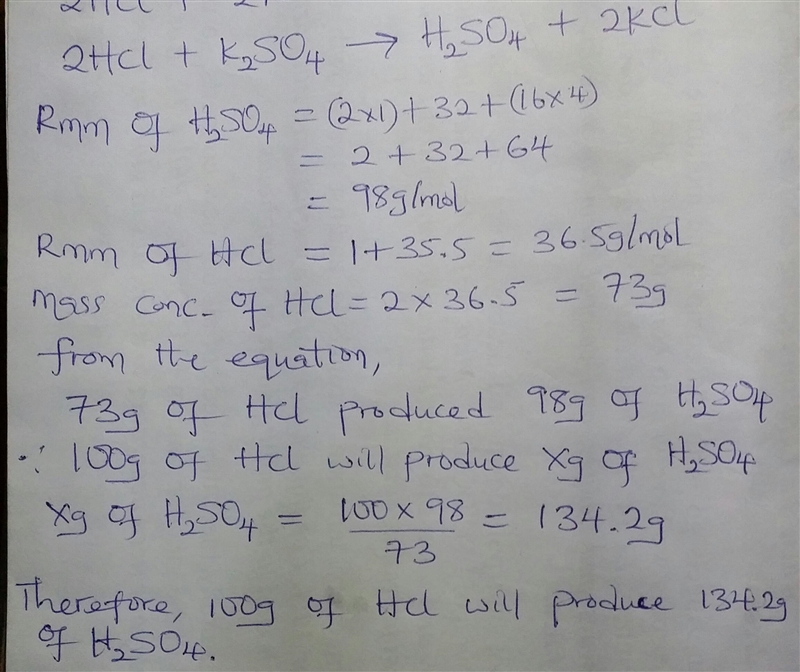 2HCl + K₂SO₄ → H₂SO₄ + 2KCl
Rmm of H₂SO₄ = (2x1) + 32 + (16x4)
= 2 + 32 + 64
= 98g/mol
Rmm of HCl = 1 + 35.5 = 36.5g/mol
Mass conc. of HCl = 2 x 36.5 = 73g
from the equation,
73g of HCl produced 98g of H₂SO₄
∴ 100g of HCl will produce Xg of H₂SO₄
Xg of H₂SO₄ = 100 x 98 / 73 = 134.2g
Therefore, 100g of HCl will produce 134.2g
of H₂SO₄.